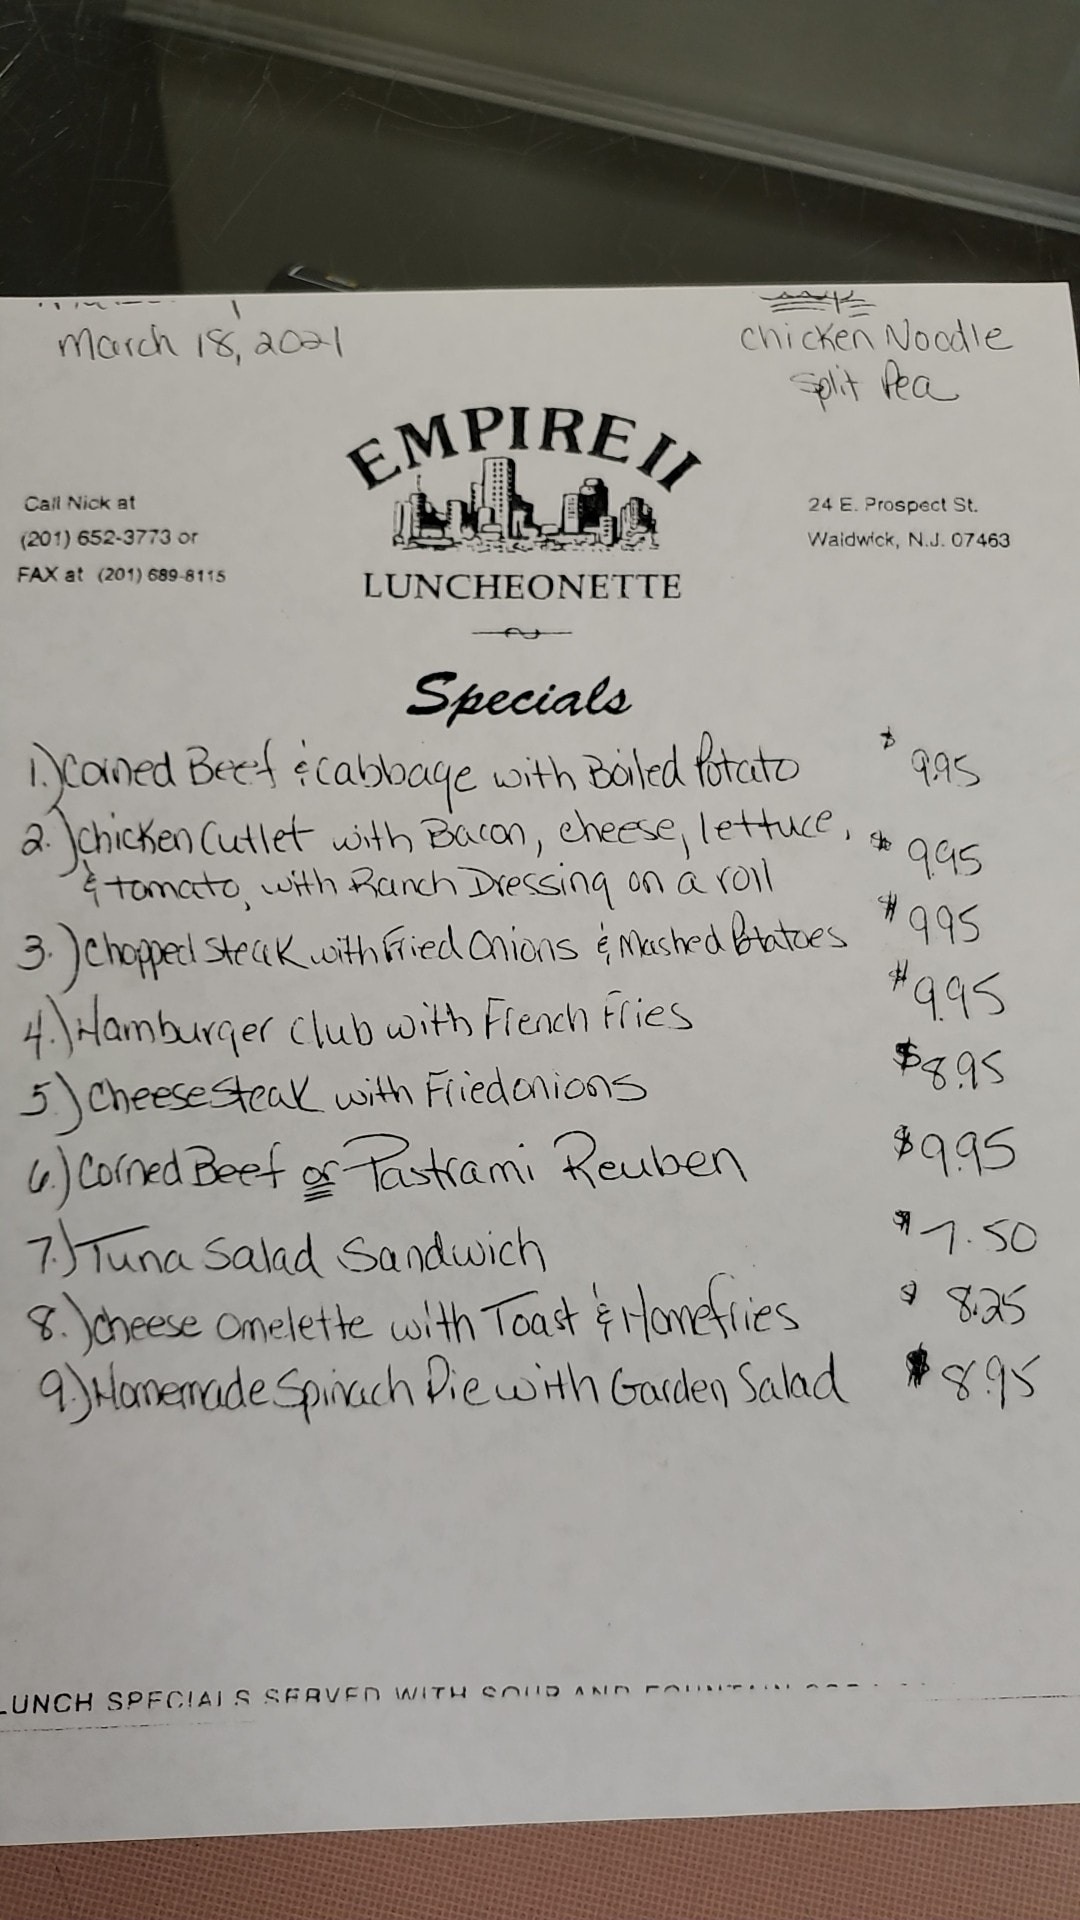 March 18, 2021
Chicken Noodle
Split Pea
EMPIRE II
LUNCHEONETTE
Call Nick at
(201) 652-3773 or
FAX at (201) 689-8115
24 E. Prospect St.
Waldwick, N.J. 07463
Specials
1.) Corned Beef & Cabbage with Boiled Potato $ 9.95
2.) Chicken Cutlet with Bacon, cheese, lettuce,
& tomato, with Ranch Dressing on a roll $ 9.95
3.) Chopped Steak with Fried Onions & Mashed Potatoes $ 9.95
4.) Hamburger Club with French Fries $ 9.95
5.) Cheese Steak with Fried onions $8.95
6.) Corned Beef or Pastrami Reuben $9.95
7.) Tuna Salad Sandwich $ 7.50
8.) Cheese Omelette with Toast & Homefries $ 8.25
9.) Homemade Spinach Pie with Garden Salad $ 8.95
LUNCH SPECIALS SERVED WITH SOUP AND FOUNTAIN